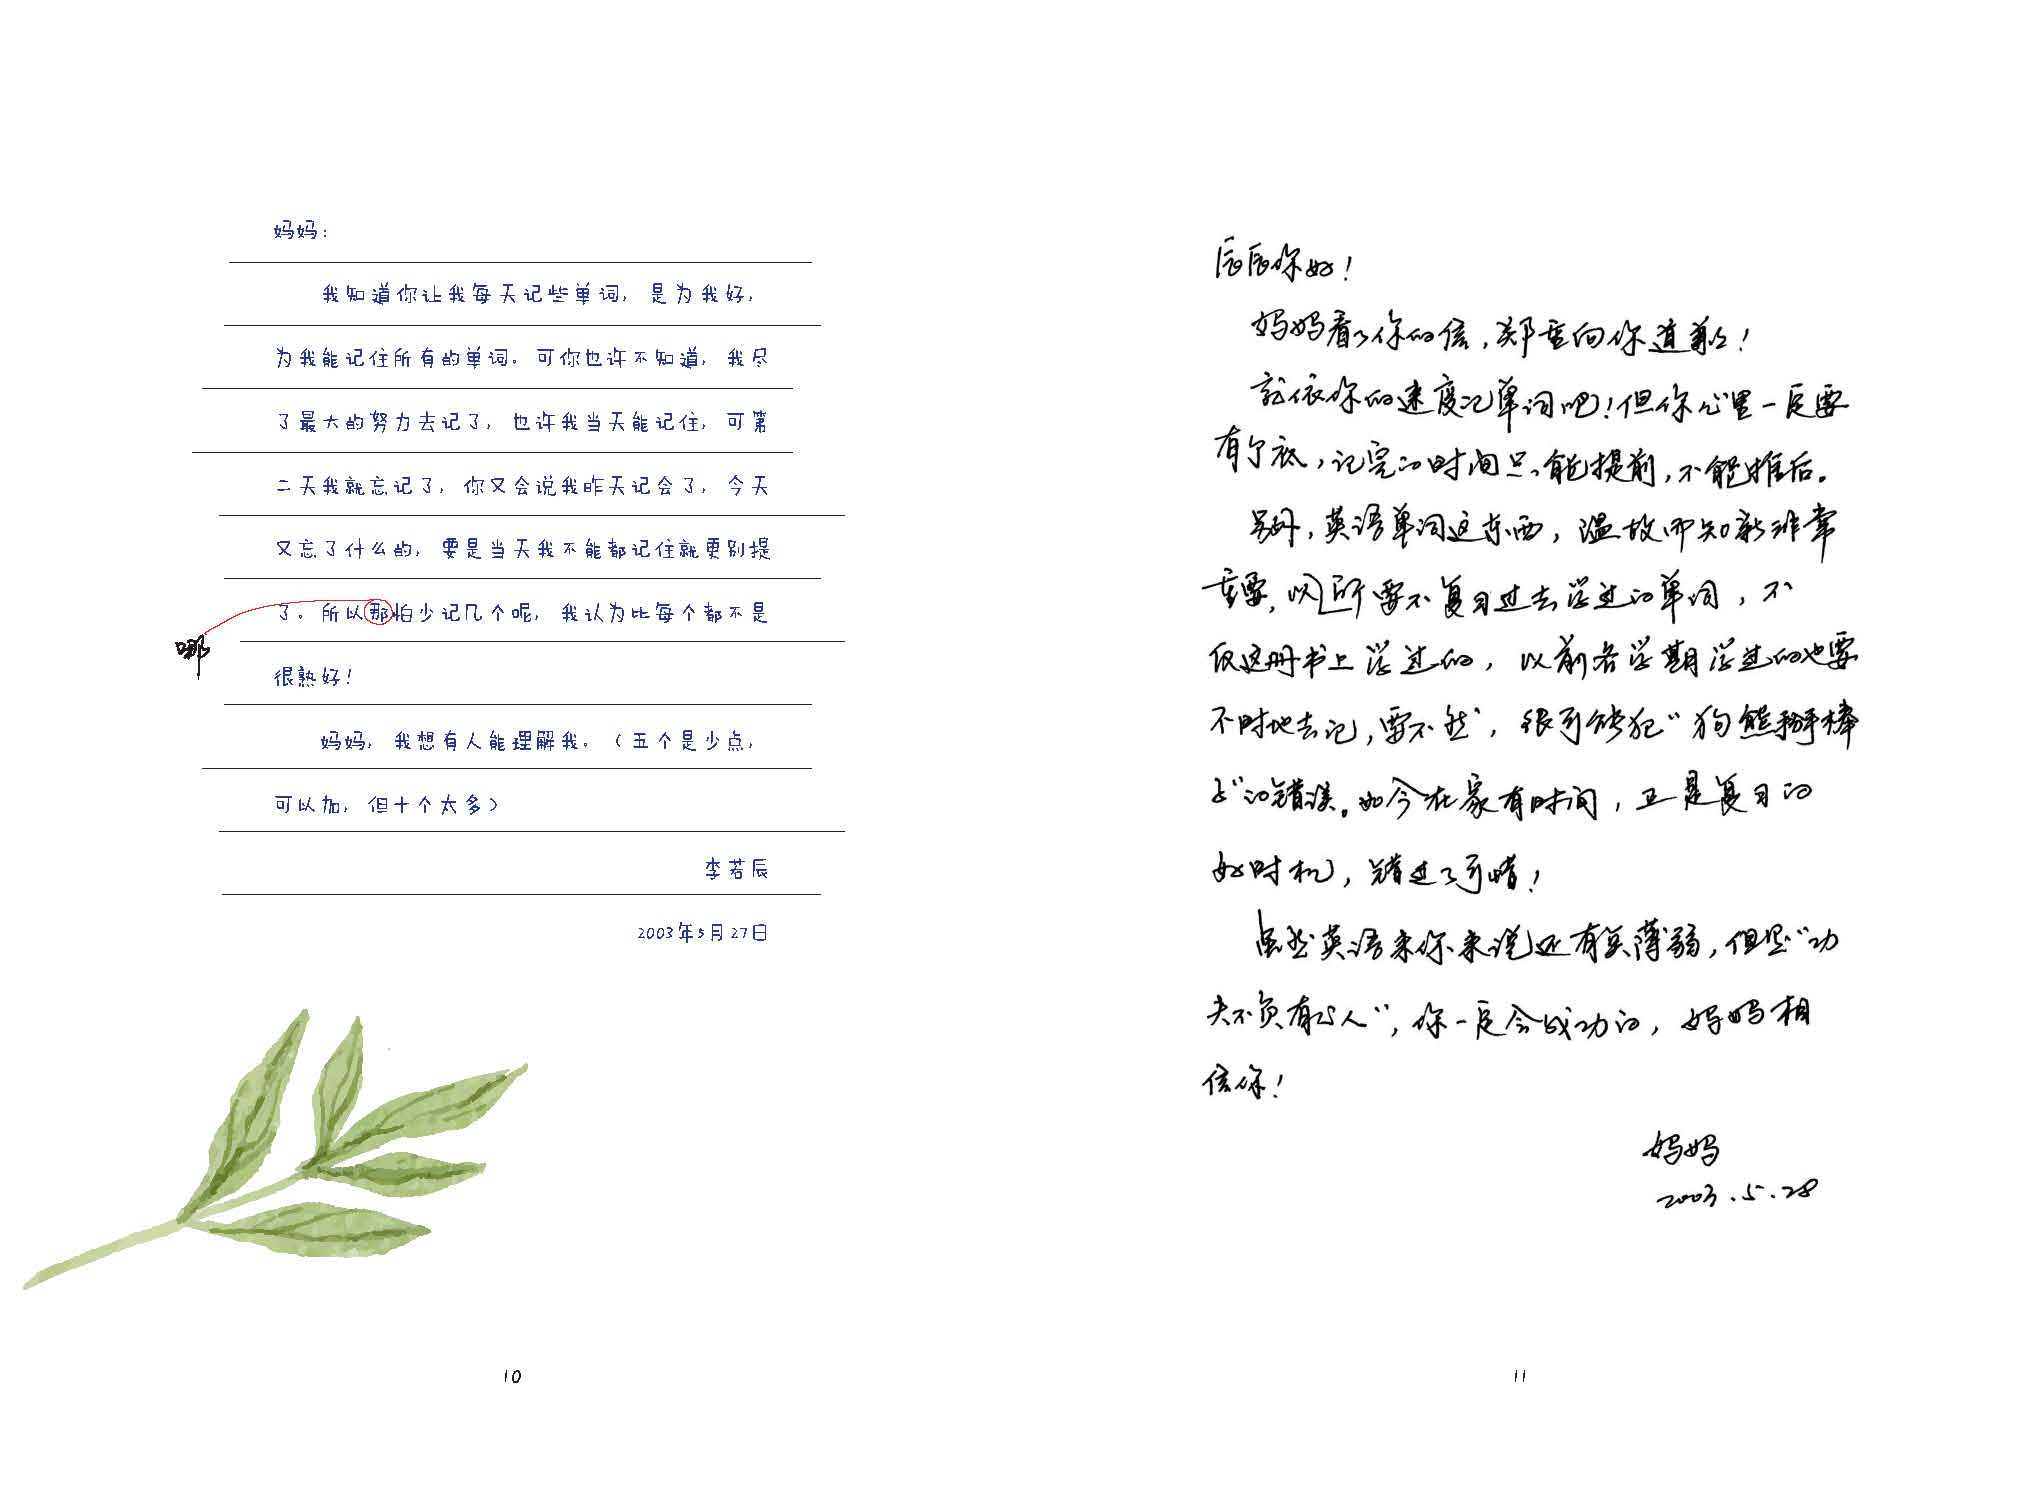 妈妈：
我知道你让我每天记些单词，是为我好，
为我能记住所有的单词。可你也许不知道，我尽
了最大的努力去记了，也许我当天能记住，可第
二天我就忘记了，你又会说我昨天记会了，今天
又忘了什么的，要是当天我不能都记住就更别提
了。所以那怕少记几个呢，我认为比每个都不是
哪
很熟好！
妈妈，我想有人能理解我。（五个是少点，
可以加，但十个太多）
李若辰
2003年5月27日
10
辰辰你好！
妈妈看了你的信，郑重向你道歉！
就依你的速度记单词吧！但你心里一定要
有个底，记完的时间只能提前，不能推后。
另外，英语单词这东西，温故而知新非常
重要，所以要不复习过去学过的单词，不
仅这册书上学过的，以前各学期学过的也要
不时地去记，要不然，很可能犯“狗熊掰棒
子”的错误。如今在家有时间，正是复习的
好时机，错过了可惜！
虽然英语来你来说还有点薄弱，但是“功
夫不负有心人”，你一定会成功的，妈妈相
信你！
妈妈
2003.5.28
11